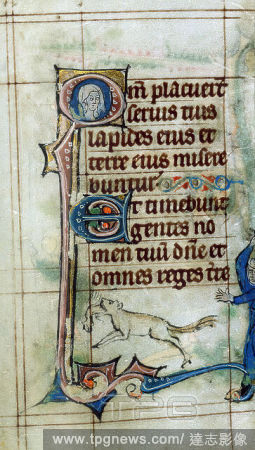 Qm̄ placuer̄t
seruis tuis
lapides eius et
terre eius misere
buntur
Et timebunt
gentes no
men tuū dn̄e et
omnes reges tr̄e
TPG
www.tpgnews.com/ 達志影像